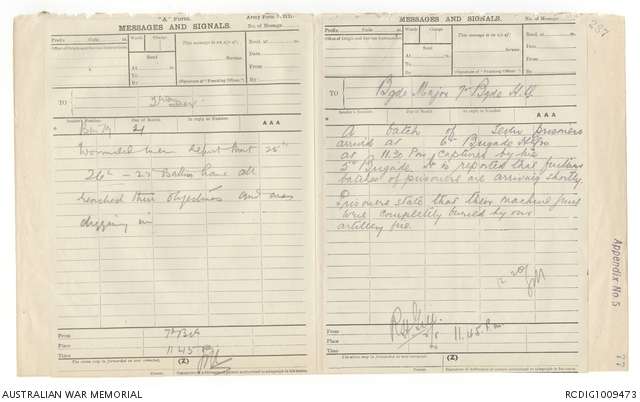 "A" Form.
Army Form C. 2121.
MESSAGES AND SIGNALS.
No. of Message
Prefix Code m.
Words Charge
This message is on a/c of:
Recd. at m.
Office of Origin and Service Instructions.
Sent
Date
At m.
Service.
From
To
By
(Signature of "Franking Officer.")
By
TO
Sender's Number.
Day of Month.
In reply to Number.
AAA
BM
Wounded men report that 25th
26th - 27 Battns have all
reached their objectives and are
digging in
From
7th Bde
Place
Time
11.45 Pm
The above may be forwarded as now corrected.
(Z)
MESSAGES AND SIGNALS.
No. of Message
237
Prefix Code m.
Words Charge
This message is on a/c of:
Recd. at m.
Office of Origin and Service Instructions.
Sent
Date
At m.
Service.
From
To
By
(Signature of "Franking Officer.")
By
TO
Bgde Major 7th Bgde H.Q.
Sender's Number.
Day of Month.
In reply to Number.
AAA
A batch of prisoners
arrived at 6th Brigade Hdqrs
at 11.30 Pm, captured by the
5th Brigade. It is reported that further
batches of prisoners are arriving shortly
Prisoners state that their machine guns
were completely buried by our
artillery fire.
From
Place
11.45 Pm
Time
The above may be forwarded as now corrected.
(Z)
Appendix No. 5
77
AUSTRALIAN WAR MEMORIAL
RCDIG1009473